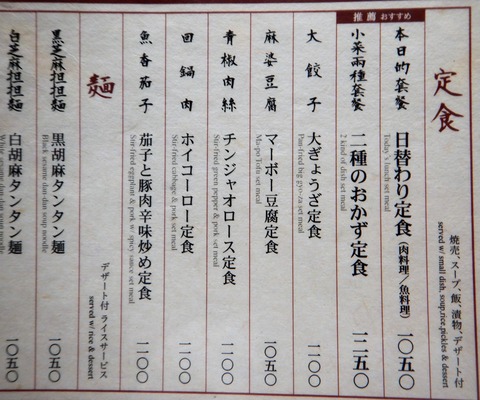 定食
焼売、スープ、飯、漬物、デザート付
served w/ small dish, soup,rice,pickles & dessert
推薦 おすすめ
本日的套餐
日替わり定食(肉料理/魚料理)
Today's lunch set meal
一〇五〇
小菜兩種套餐
二種のおかず定食
2 kind of dish set meal
一二五〇
大餃子
大ぎょうざ定食
Pan-fried big gyo-za set meal
一一〇〇
麻婆豆腐
マーボー豆腐定食
Ma-po Tofu set meal
一〇五〇
青椒肉絲
チンジャオロース定食
Stir-fried green pepper & pork set meal
一一〇〇
回鍋肉
ホイコーロー定食
Stir-fried cabbage & pork set meal
一一〇〇
魚香茄子
茄子と豚肉辛味炒め定食
Stir-fried eggplant & pork w/ spicy sauce set meal
一一〇〇
麺
デザート付 ライスサービス
served w/ rice & dessert
黒芝麻担担麺
黒胡麻タンタン麺
Black sesame dan dan soup noodle
一〇五〇
白芝麻担担麺
白胡麻タンタン麺
White sesame dan dan soup noodle
一〇五〇